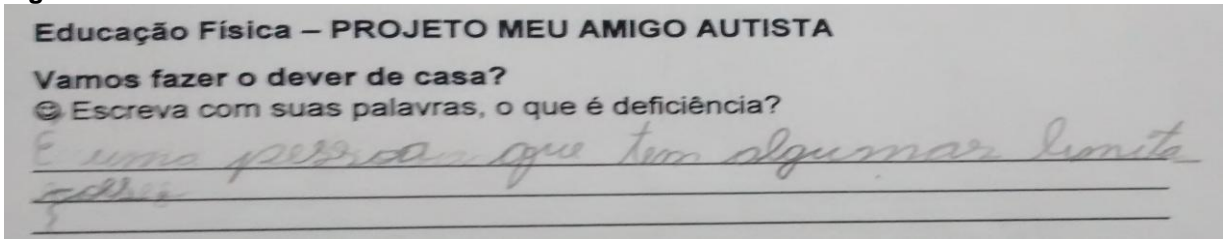 Educação Física – PROJETO MEU AMIGO AUTISTA
Vamos fazer o dever de casa?
☺ Escreva com suas palavras, o que é deficiência?
É uma pessoa que tem algumas limita